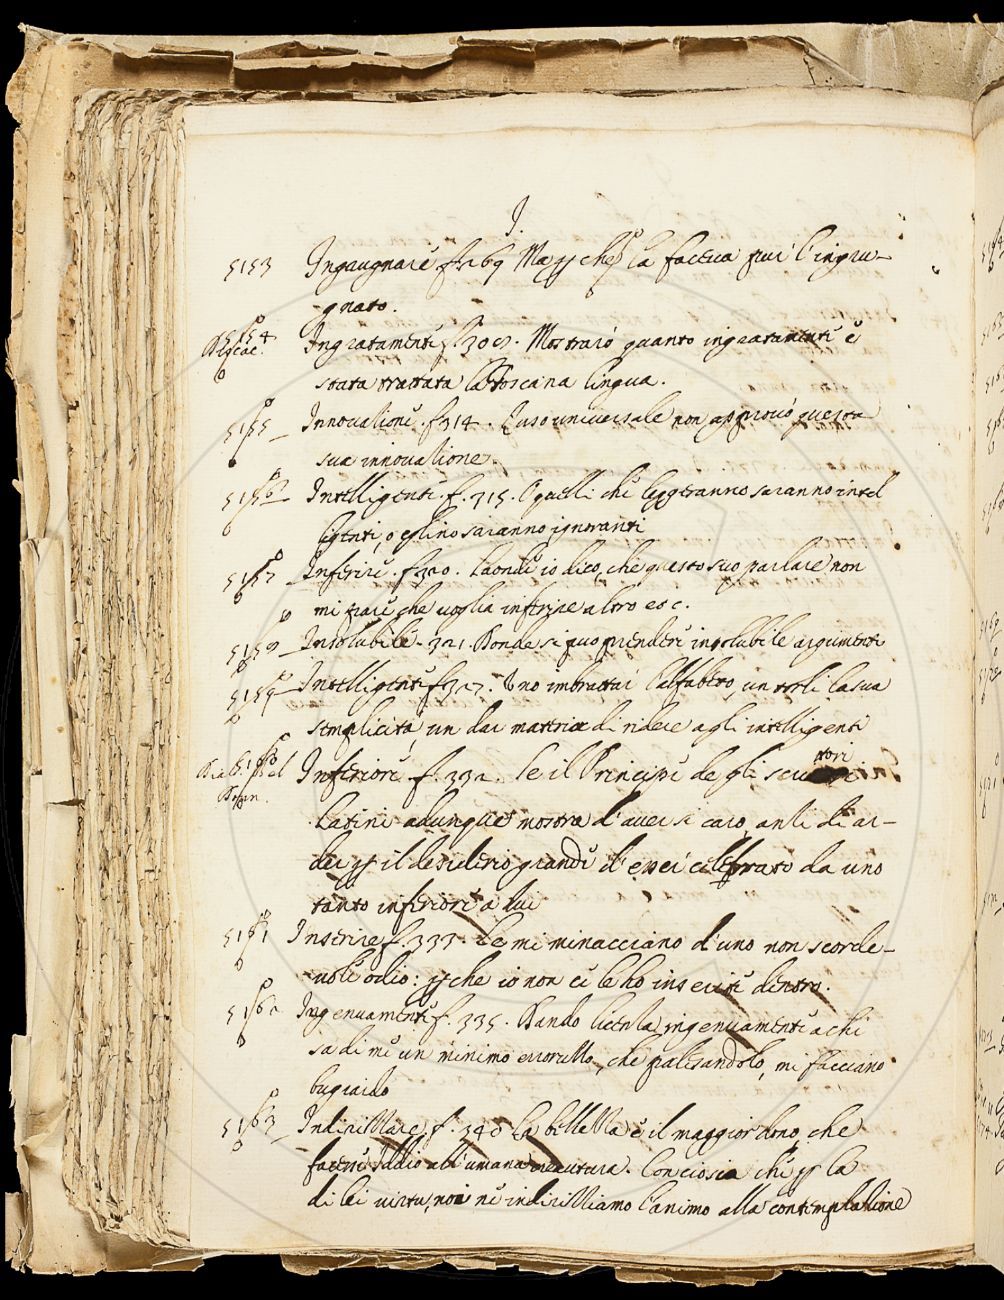 I.
5153 Ingrugnare f. 269 Ma che la faceva più l'ingru-
gnato.
5154 Ingratamente f. 302. Mostrarò quanto ingratamente è
stata trattata la Toscana lingua.
5155 Innovatione. f 314. L'uso universale non approvò questa
sua innovatione.
5156 Intelligenti. f. 315. O quelli che leggeranno saranno intel
ligenti, o eglino saranno ignoranti
5157 Inferire. f 320. Laonde io dico, che questo suo parlare non
mi pare che voglia inferire altro es c.
5158 Insolubile. 321. Donde si puo prendere insolubile argumento
5159 Intelligenti f 327. Uno imbrattar l'alfabeto, un torli la sua
semplicità, un dar materia di ridere agli intelligenti
5160 Inferiore. f. 332. Se il Principe degli scrit
tori
Latini adunque mostra d'aver si caro, anzi di ar-
der il desiderio grande d'esser celebrato da uno
tanto inferiore a lui
5161 Inserire f. 333. Le mi minacciano d'uno non scorde-
vole odio: che io non ci le ho inserite dentro.
5162 Ingenuamente f. 335. Dando licenza ingenuamente a chi
sa di me un minimo erroruzzo, che palesandolo, mi facciano
bugiardo
5163 Indirizzare f. 340 La bellezza è il maggior dono, che
facesse Iddio all'umana creatura. Conciosia che la
di lei virtu, noi ne indirizziamo l'animo alla contemplazione